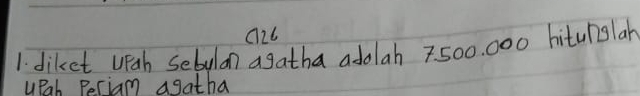 A26
1. diket upah sebulan agatha adalah 7500.000 hitunglah
upah perjam agatha